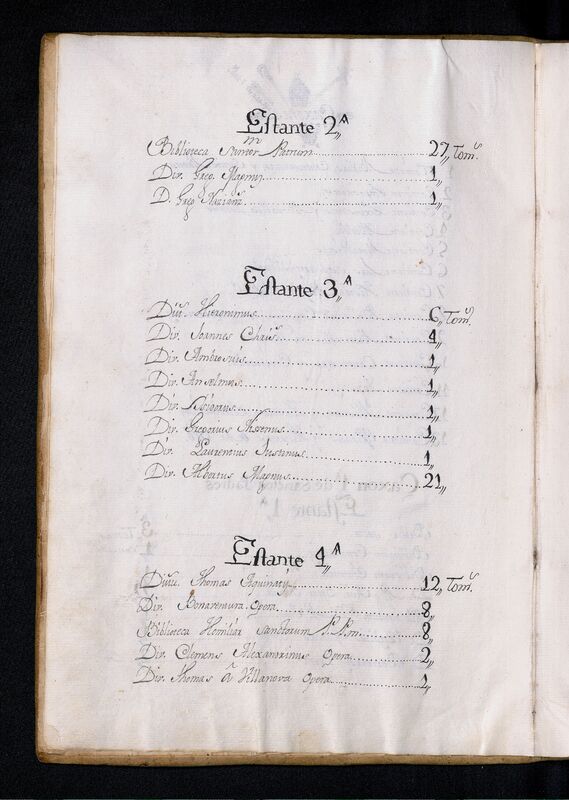 Estante 2,,ª
Biblioteca Sanctor.m Patrum 27,, Tom.s
Div. Greg. Magnus 1,,
D. Greg. Nazianz. 1,,
Estante 3,,ª
Div. Hieronimus 6,, Tom.s
Div. Joannes Chris. 4
Div. Ambrosius 1,,
Div. Anselmus 1,,
Div. Isidorus 1,,
Div. Gregorius Nisenus 1,,
Div. Laurentius Justinus 1,,
Div. Albertus Magnus 21,,
Estante 4,,ª
Thomas Aquinat. 12,, Tom.s
Div. Bonaventura Opera 8,,
Biblioteca Homiliar. Sanctorum P.P. 8,,
Div. Clemens Alexandrinus Opera 2,,
Div. Thomas â Villanova Opera 1,,